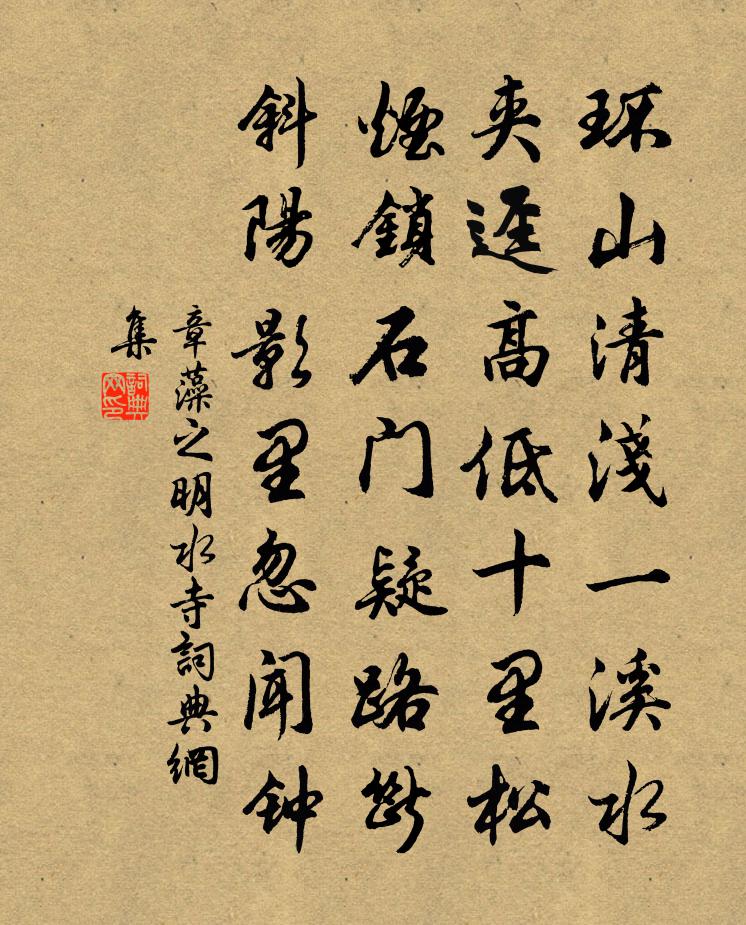 环山清淺一溪水
夹逕高低十里松
烟鎖石门疑路断
斜陽影里忽闻钟
章藻之明水寺詞典網
集
詞典
网印